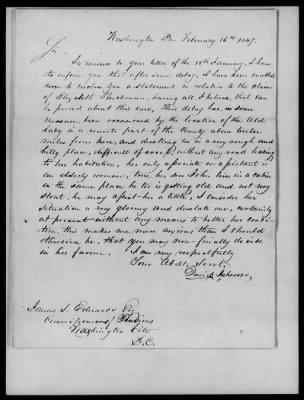 Washington Pa. February 16th 1847.
Sir,
In answer to your letter of the 18th January, I have
to inform you that after some delay, I have been enabled
now to enclose you a statement in relation to the claim
of Elizabeth, having all, I believe, that can
be proved about this case, This delay has in some
measure, been occasioned by the location of the Old
lady in a remote part of the County above twelve
miles from here, and situating in a very rough and
hilly place, difficult of, without any road leading
to her habitation, her only associate or assistant is
an elderly woman, tho her son John lives in a cabin
on the same place he too is getting old and not very
stout, he may assist her a little, I consider her
situation a very gloomy and desolate one, certainly
at present without any means to better her condi-
tion, this makes me more anxious than I should
otherwise be, that you may now finally decide
in her favour. I am very respectfully
Your Obdt. Servt.
David Acheson,
James L. Edwards Esq
Commissioner of Pensions
Washington City
D.C.